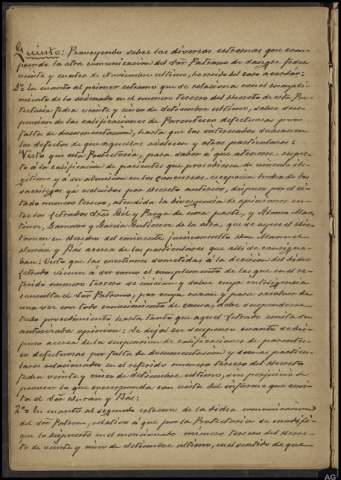 Quinto: Proveyendo sobre los diversos extremos que com-
prende la otra comunicacion del Sõr Patrono de sangre, fecha
veinte y cuatro de Noviembre último, he creido del caso acordar:
1º En cuanto al primer extremo que se relaciona con el cumpli-
miento de lo ordenado en el número tercero del Decreto de esta Pro-
tectoría fecha veinte y cinco de Setiembre último, sobre sus-
pension de las calificaciones de Parentesco defectuosas por
falta de documentacion, hasta que los interesados subsanen
los defectos de que aquellas adolecen y otros particulares:
Visto que esta Protectoría, para saber á que atenerse respec-
to á la calificacion de parientes que procediesen de union ile-
gítima y de su admision en los concursos, excepcion hecha de los
sacrílegos ya excluidos por decreto anterior, dispuso por el ci-
tado número tercero, atendida la divergencia de opiniones en-
tre los Letrados Sõres
de una parte, y
de la otra, que se oyese el dic-
támen en derecho del eminente jurisconsulto
Durán y Bás acerca de los particulares que allí se consigna-
ban: Visto que las cuestiones sometidas á la decision del dicho
Letrado vienen á ser como el complemento de las que en el re-
ferido número tercero se inician y sobre cuya inteligencia
consulta el Sõr Patrono, por cuya razon y para resolver de
una vez con todo conocimiento de causa, debe suspenderse
todo procedimiento hasta tanto que aquel Letrado emita su
autorizada opinion: He dejar en suspenso cuanto se dis-
puso acerca de la suspension de calificaciones de parentes-
co defectuosas por falta de documentacion y demás particu-
lares relacionados en el referido número tercero del Decreto
fecha veinte y cinco de Setiembre último, sin perjuicio de
proveer lo que corresponda con vista del informe que emi-
ta el Sõr Durán y Bás:
2º En cuanto al segundo extremo de la dicha comunicacion
del Sõr Patrono, relativo á que por la Protectoría se modifi-
que lo dispuesto en el mencionado número tercero del Decre-
to de veinte y cinco de Setiembre último, en el sentido de que
AG